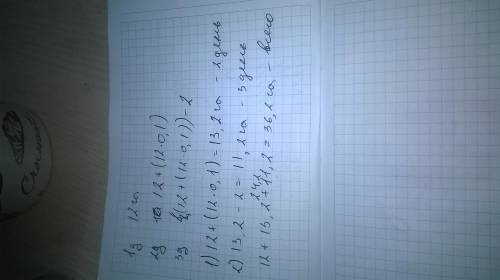 1д 12 га
2д 12+(12·0,1)
3д (12+(12·0,1))-2
1) 12+(12·0,1)=13,2 га - 2 день
2) 13,2-2=11,2 га - 3 день
24,2
12+13,2+11,2=36,2 га - всего